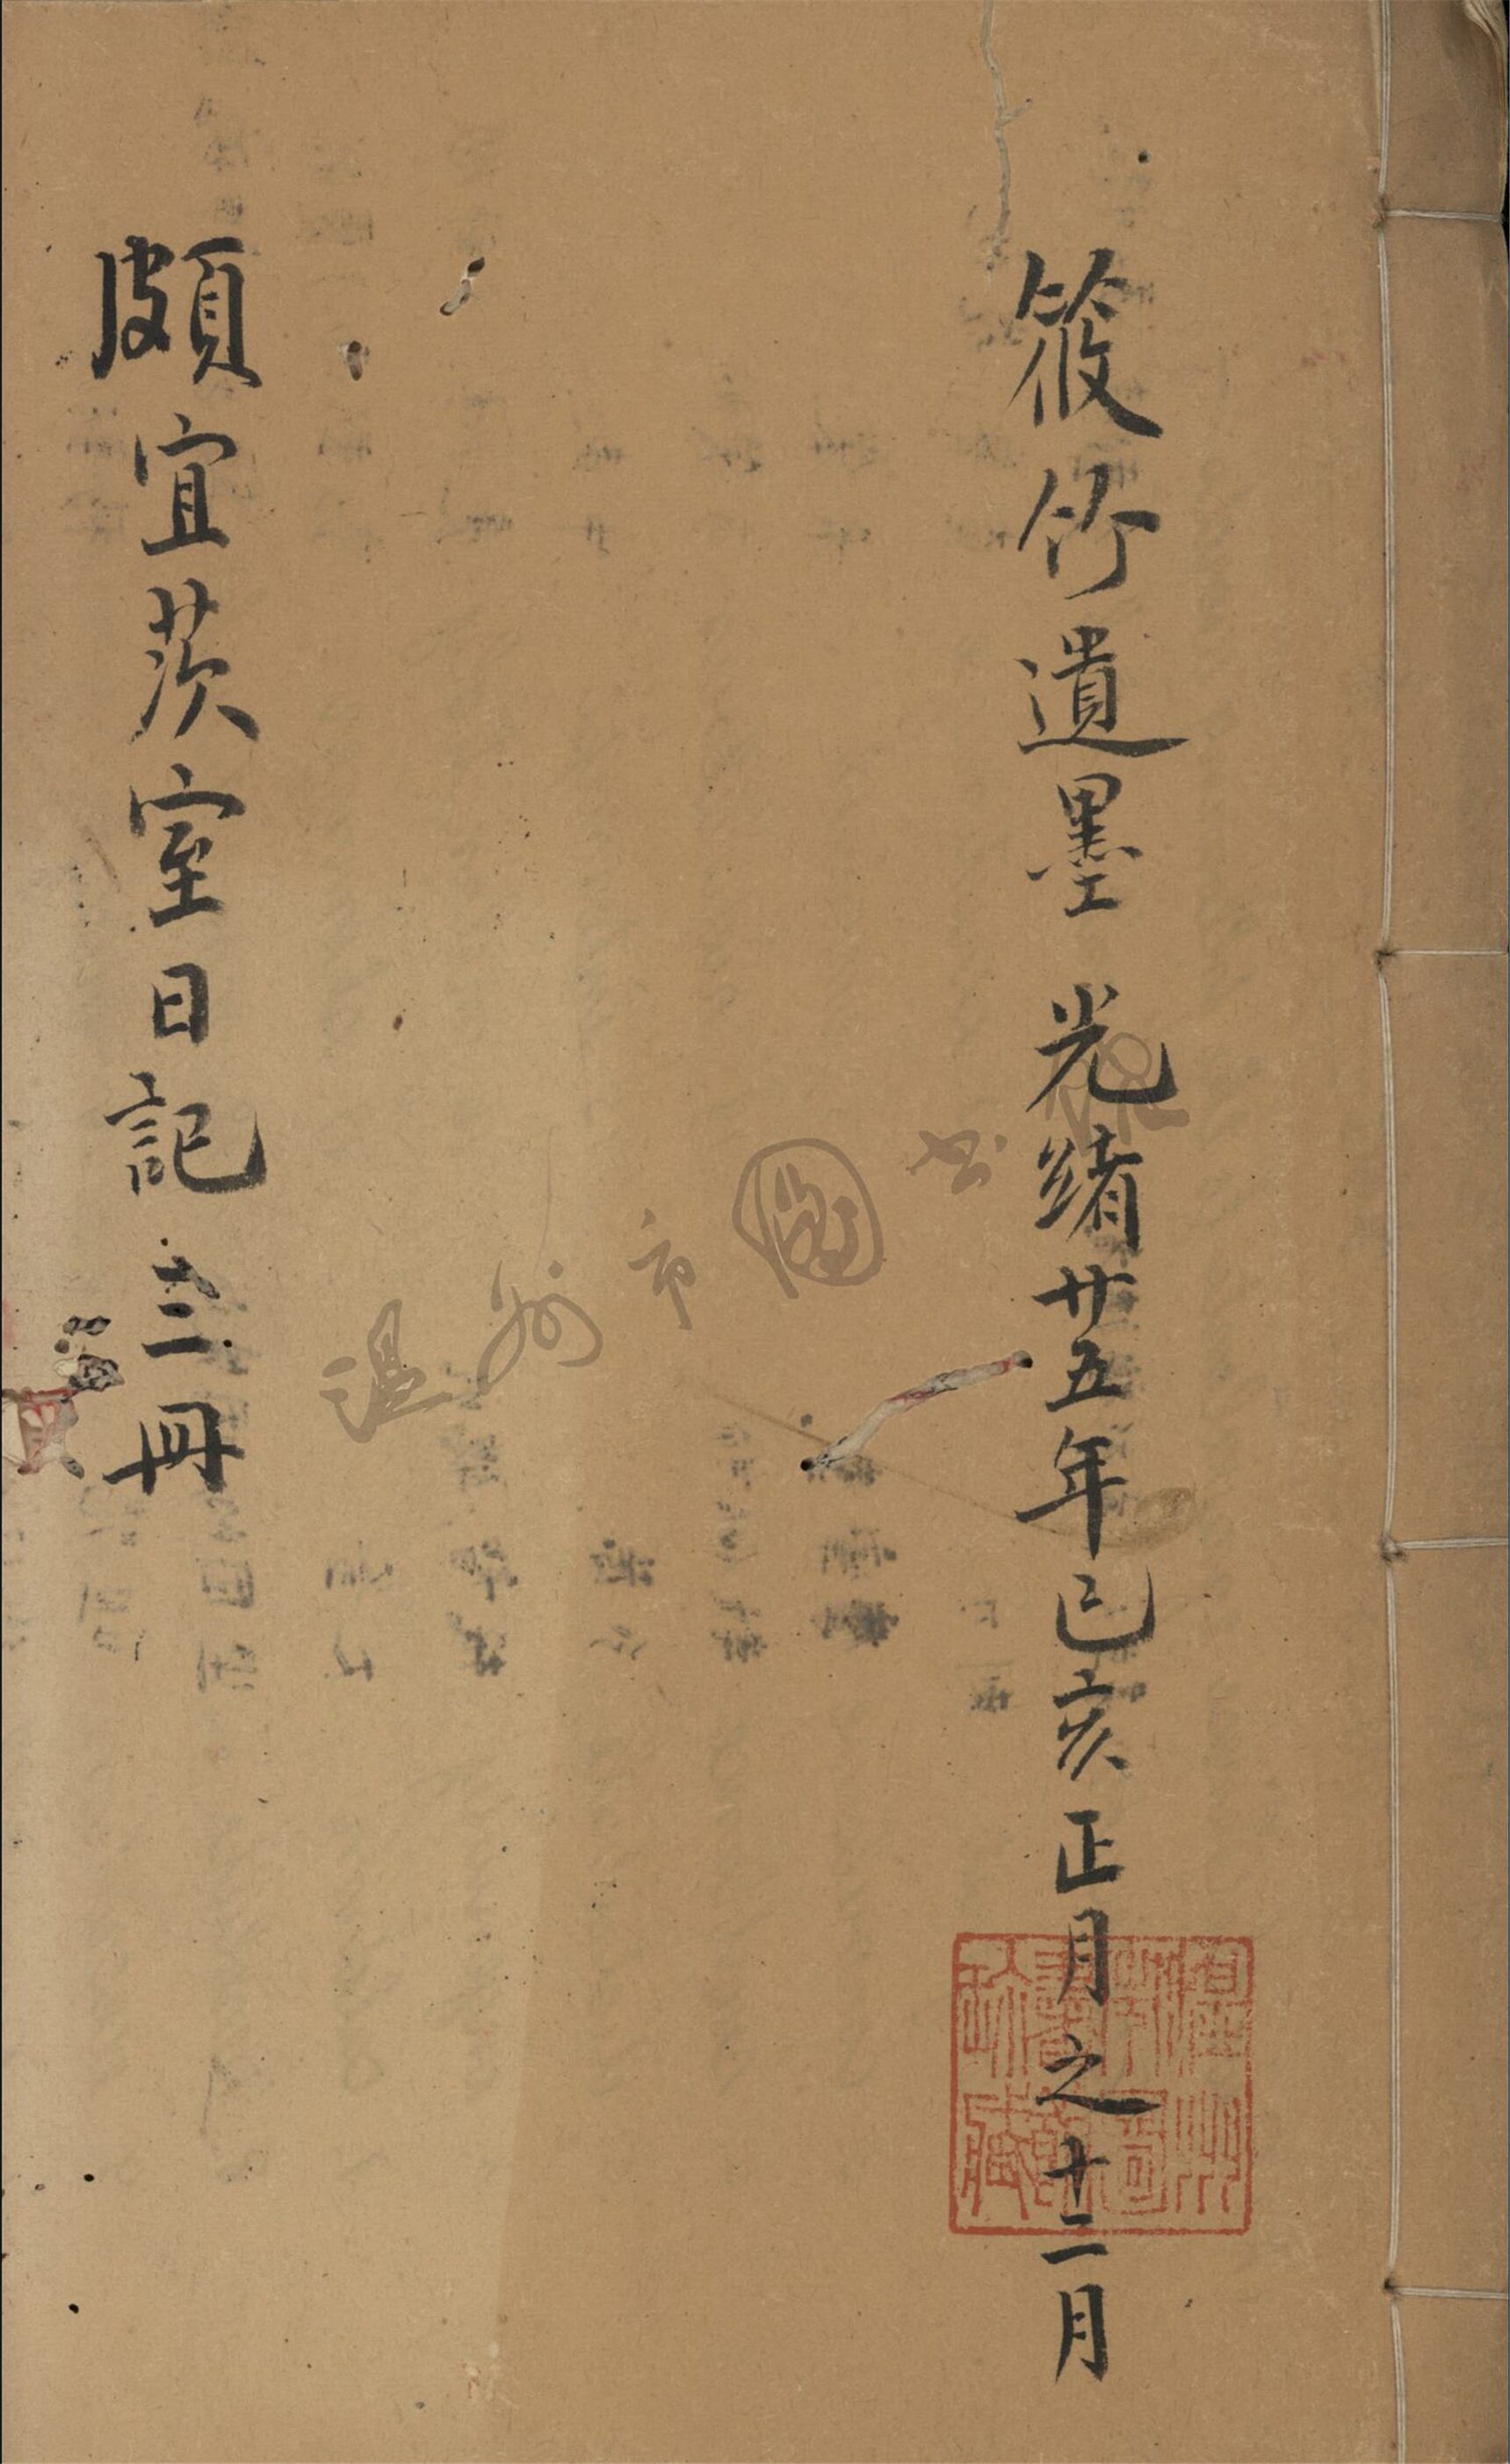 筱竹遺墨 光緒廿五年己亥正月之十二月
頗宜茨室日記 三冊
温州市圖书馆